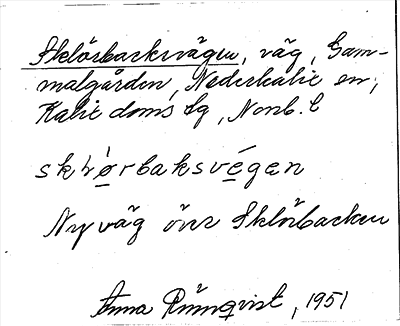 Sklörbacksvägen, väg, Gam-
malgården, Nederkalix sn,
Kalix doms lg, Norrb. l
skļörbaksvégen
Ny väg över Sklörbacken
Anna Rönnqvist, 1951